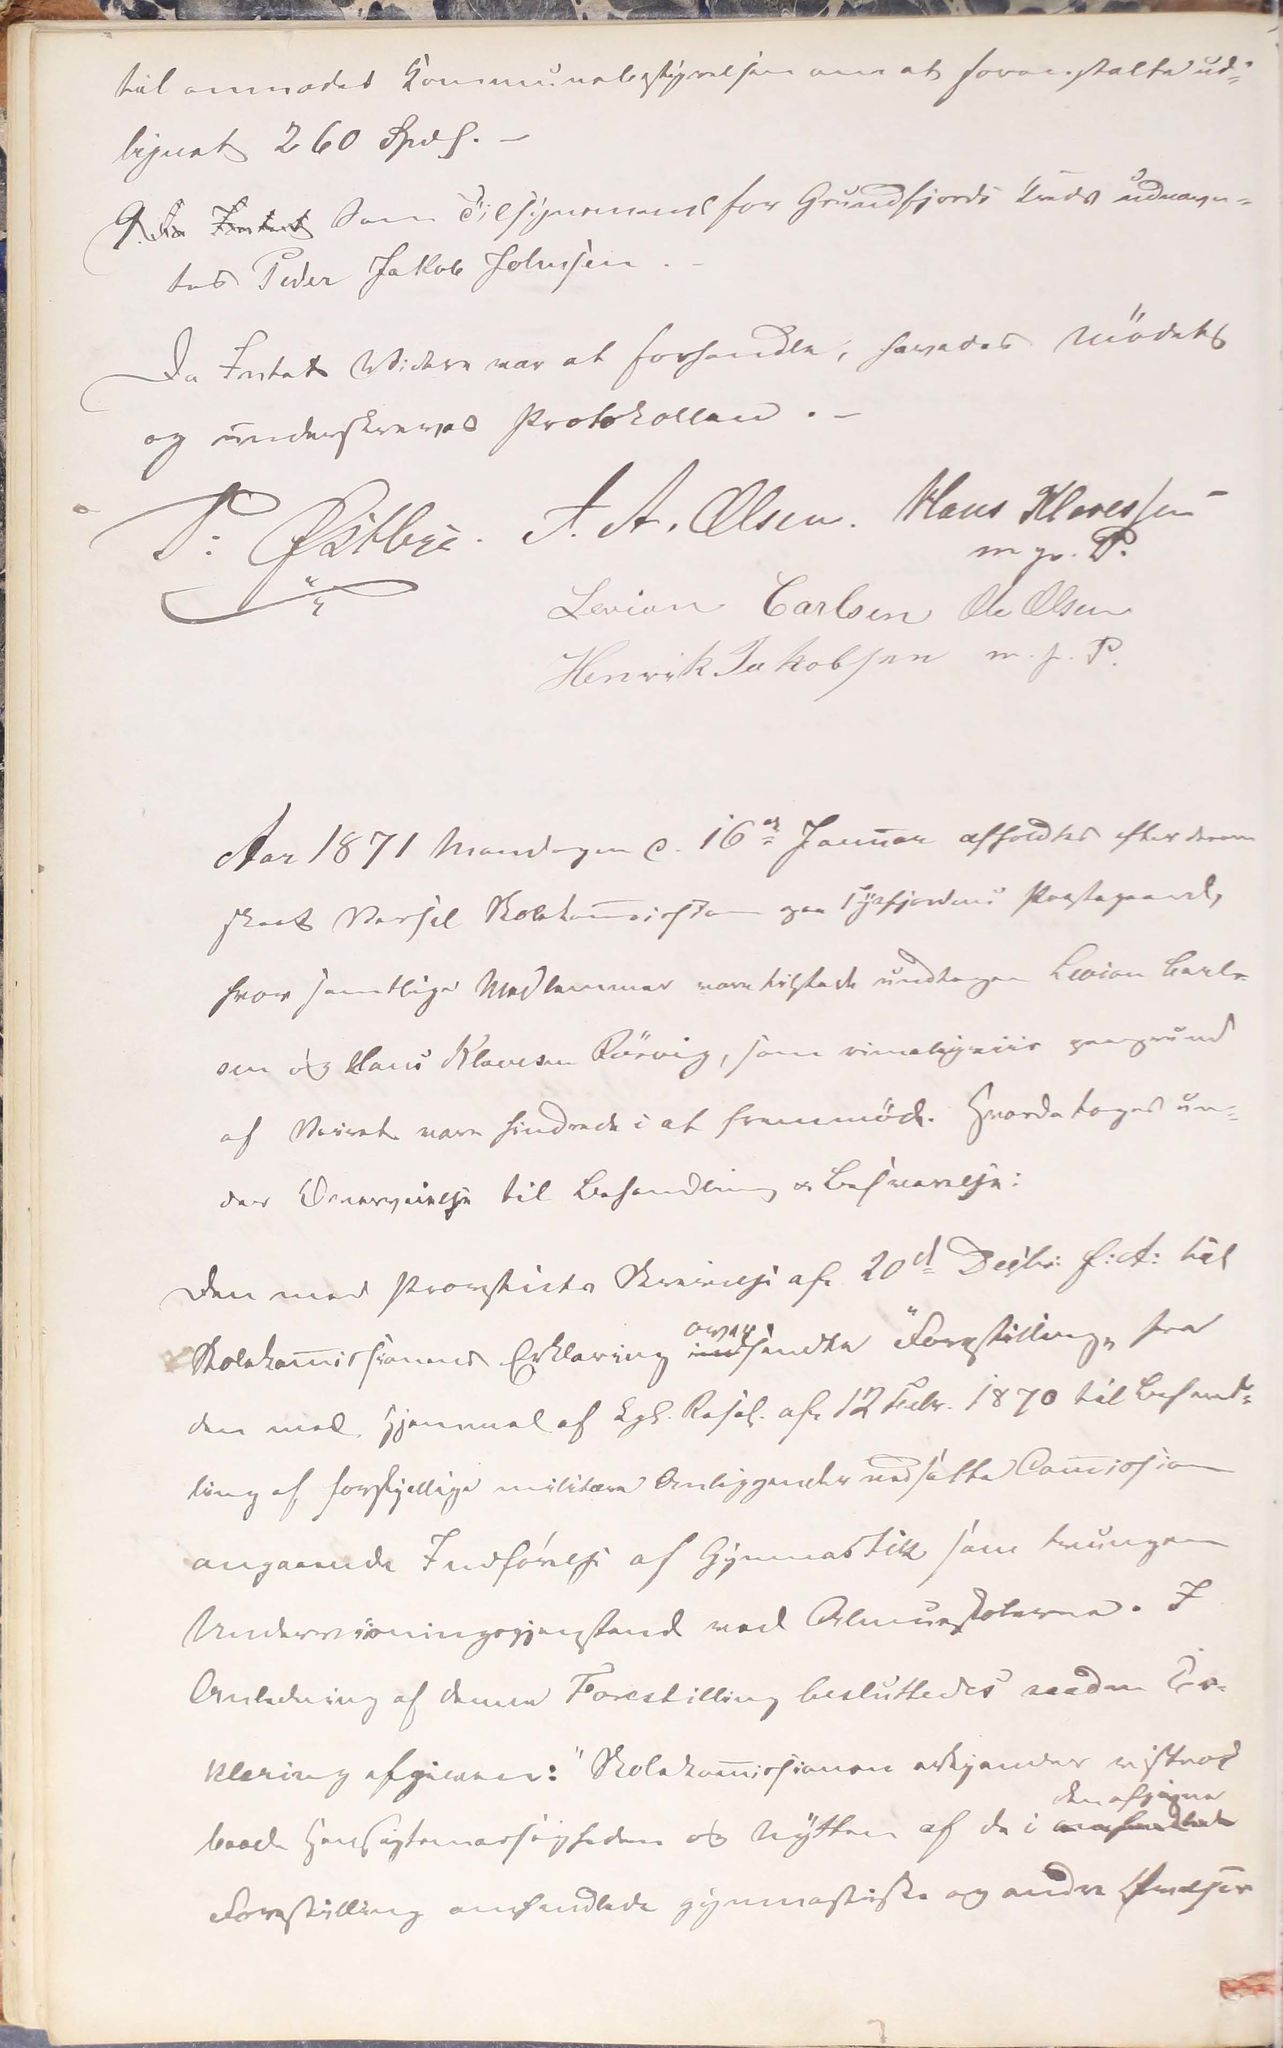 til anmodes Kommunebestyrelsen om at foranstalte ud-
lignet 260 Spds. —
9. Da Intet Som Tilsynsmand for Grundfjords Kreds udnævn-
tes Peder Jakob Johnsen. —
Da Intet Videre var at forhandle, hævedes Mödet
og underskreves Protokollen. —
P: Østbye. A. A. Olsen. Hans Klavessen
m. p. P.
Levion Carlsen Ole Olsen
Henrik Jakobsen m. p. P.
Aar 1871 Mandagen d. 16de Januar afholdtes efter derom
skeet Varsel Skolekommission paa Tysfjordens Præstegaard,
hvor samtlige Medlemmer vare tilstede undtagen Levion Carl-
sen og Hans Klavesen Rörvig, som rimeligviis paagrund
af Veiret vare hindrede i at fremmöde. Hvorda toges un-
der Overveielse til Behandling & Besvarelse:
Den med Provstiets Skrivelse af 20d Decbr: f: A: til
Skolekommissionens Erklæring ind over sendte "Forestilling" fra
den med Hjemmel af Kgl. Resol. af 12 Febr. 1870 til Behand-
ling af forskjellige militære Anliggender nedsatte Commission
angaaende Indförelse af Gymnastik som tvungen
Undervisningsgjenstand ved Almueskolerne. I
Anledning af denne Forestilling besluttedes saadan Er-
klæring afgiven: "Skolekommissionen erkjender vistnok
baade Hensigtsmæssigheden og Nytten af de i omhandlede
Forestilling omhandlede gymnastiske og andre Øvelser